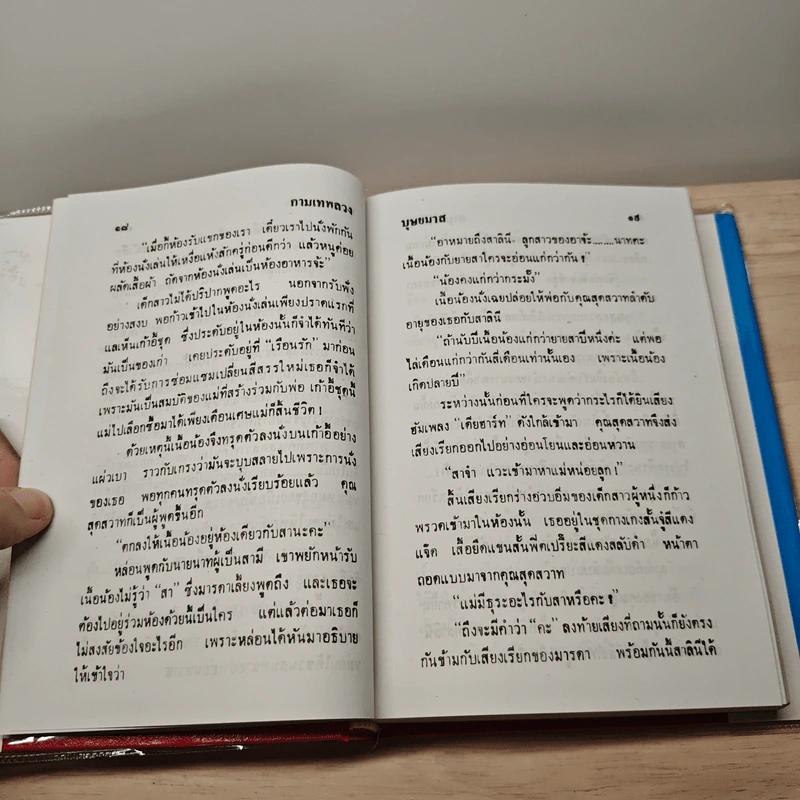 ๑๘ กามเทพลวง
“เมื่อกี้ห้องรับแขกของเรา เดี๋ยวเราไปนั่งพักกัน
ที่ห้องนั่งเล่นให้เหงื่อแห้งสักครู่ก่อนดีกว่า แล้วหนูค่อย
ผลัดเสื้อผ้า ถัดจากห้องนั่งเล่นเป็นห้องอาหารจ้ะ”
เด็กสาวไม่ได้ปริปากพูดอะไร นอกจากรับฟัง
อย่างสงบ พอก้าวเข้าไปในห้องนั่งเล่นเพียงปราดแรกที่
แลเห็นเก้าอี้ชุด ซึ่งประดับอยู่ในห้องนั้นก็จำได้ทันทีว่า
มันเป็นของเก่า เคยประดับอยู่ที่ “เรือนรัก” มาก่อน
ถึงจะได้รับการซ่อมแซมเปลี่ยนสีสรรใหม่เธอก็จำได้
เพราะมันเป็นสมบัติของแม่ที่สร้างร่วมกับพ่อ เก้าอี้ชุดนี้
แม่ไปเลือกซื้อมาได้เพียงเดือนเศษแม่ก็สิ้นชีวิต !
ด้วยเหตุนี้เนื้อน้องจึงทรุดตัวลงนั่งบนเก้าอี้อย่าง
แผ่วเบา ราวกับเกรงว่ามันจะบุบสลายไปเพราะการนั่ง
ของเธอ พอทุกคนทรุดตัวลงนั่งเรียบร้อยแล้ว คุณ
สุดสวาทก็เป็นผู้พูดขึ้นอีก
“ตกลงให้เนื้อน้องอยู่ห้องเดียวกับสานะคะ”
หล่อนพูดกับนายนาทผู้เป็นสามี เขาพยักหน้ารับ
เนื้อน้องไม่รู้ว่า “สา” ซึ่งมารดาเลี้ยงพูดถึง และเธอจะ
ต้องไปอยู่ร่วมห้องด้วยนี้เป็นใคร แต่แล้วต่อมาเธอก็
ไม่สงสัยข้องใจอะไรอีก เพราะหล่อนได้หันมาอธิบาย
ให้เข้าใจว่า
บุษยมาส ๑๙
“อาหมายถึงสาลินี ลูกสาวของอาจ้ะ........นาทคะ
เนื้อน้องกับยายสาใครจะอ่อนแก่กว่ากัน ?”
“น้องคงแก่กว่ากระมั้ง”
เนื้อน้องนั่งเฉยปล่อยให้พ่อกับคุณสุดสวาทลำดับ
อายุของเธอกับสาลินี
“ถ้านับปีเนื้อน้องแก่กว่ายายสาปีหนึ่งค่ะ แต่พอ
ไล่เดือนแก่กว่ากันสี่เดือนเท่านั้นเอง เพราะเนื้อน้อง
เกิดปลายปี”
ระหว่างนั้นก่อนที่ใครจะพูดว่ากระไรก็ได้ยินเสียง
ฮัมเพลง “เดียฮาร์ท” ดังใกล้เข้ามา คุณสุดสวาทจึงส่ง
เสียงเรียกออกไปอย่างอ่อนโยนและอ่อนหวาน
“สาจ๋า แวะเข้ามาหาแม่หน่อยลูก !”
สิ้นเสียงเรียกร่างอ่วบอิ่มของเด็กสาวผู้หนึ่งก็ก้าว
พรวดเข้ามาในห้องนั้น เธออยู่ในชุดกางเกงสั้นจู๋สีแดง
แจ๊ด เสื้อยืดแขนสั้นฟิตเปรี๊ยะสีแดงสลับดำ หน้าตา
ถอดแบบมาจากคุณสุดสวาท
“แม่มีธุระอะไรกับสาหรือคะ ?”
“ถึงจะมีคำว่า “คะ” ลงท้ายเสียงที่ถามนั้นก็ยังตรง
กันข้ามกับเสียงเรียกของมารดา พร้อมกันนี้สาลินีได้